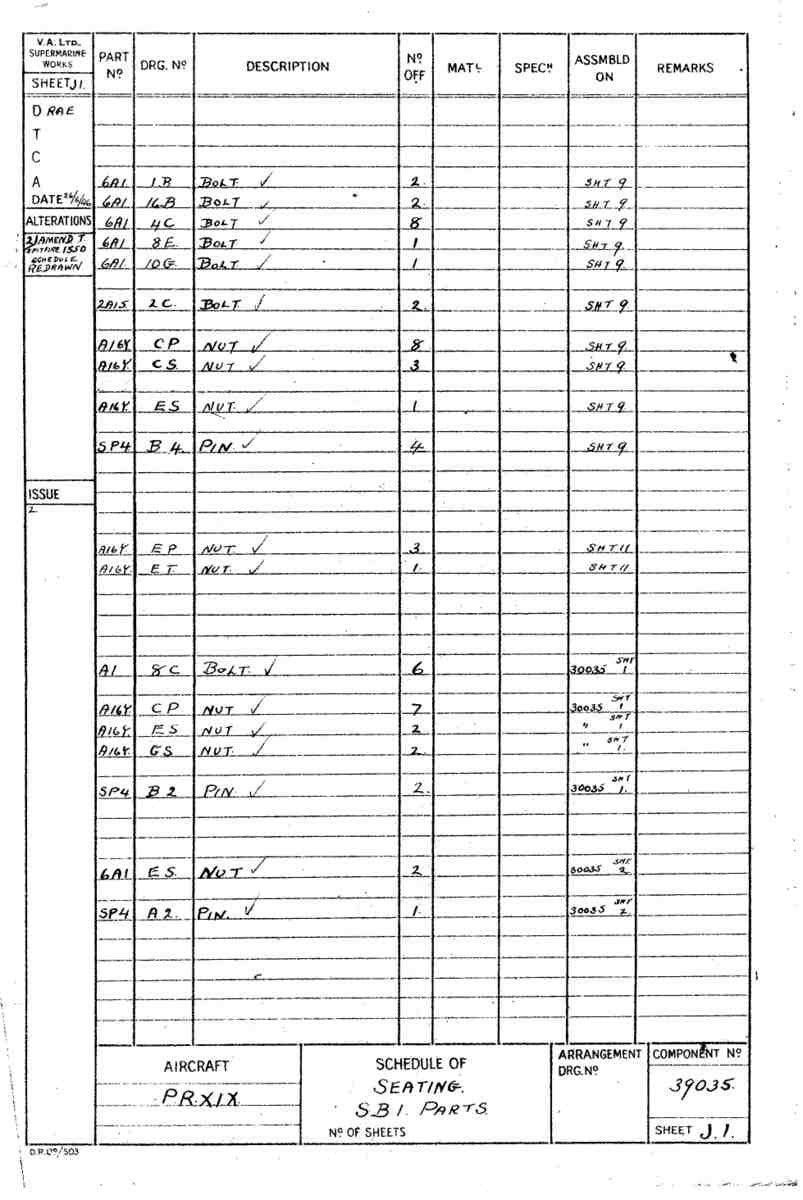 V.A. LTD. SUPERMARINE WORKS
SHEET J1.
PART Nº
DRG. Nº
DESCRIPTION
Nº OFF
MATL
SPECN
ASSMBLD ON
REMARKS
D RAE
T
C
A 6A1 1.B BOLT ✓ 2. SHT 9
DATE 6A1 16.B BOLT ✓ 2. SHT 9
ALTERATIONS 6A1 4C BOLT ✓ 8 SHT 9
2) AMEND T. 6A1 8E. BOLT ✓ 1 SHT 9.
SPITFIRE 1550
SCHEDULE
REDRAWN 6A1 10G. BOLT ✓ 1 SHT 9.
2A15. 2C. BOLT ✓ 2. SHT 9
A16Y. CP NUT ✓ 8 SHT 9.
A16Y. CS. NUT ✓ 3 SHT 9.
A16Y. ES NUT. ✓ 1 SHT 9
SP4 B 4. PIN. ✓ 4 SHT 9
ISSUE
2
A16Y. EP NUT. ✓ 3 SHT.11
A16Y. ET. NUT. ✓ 1. SHT 11
A1 8C BOLT. ✓ 6 30035 SHT 1
A16Y CP NUT ✓ 7 30035 SHT 1
A16Y. ES NUT ✓ 2 " SHT 1
A16Y. GS NUT. ✓ 2. " SHT 1.
SP4 B 2 PIN. ✓ 2. 30035 SHT 1.
6A1 ES. NUT ✓ 2 30035 SHT 2
SP4 A 2. PIN. ✓ 1. 30035 SHT 2
AIRCRAFT
PR.XIX
SCHEDULE OF
SEATING.
S.B 1. PARTS
Nº OF SHEETS
ARRANGEMENT DRG.Nº
COMPONENT Nº
39035.
SHEET J.1.